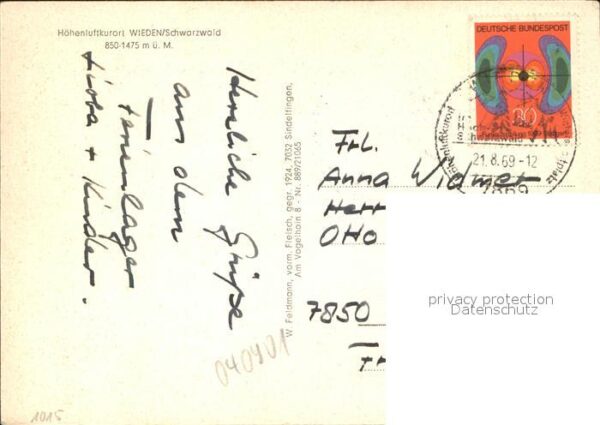 Höhenluftkurort WIEDEN/Schwarzwald
850-1475 m ü. M.
Herzliche Grüße
aus dem
Ferienlager
Luba + Kinder.
W. Feldmann, vorm. Fleisch, gegr. 1924, 7032 Sindelfingen,
Am Vogelhain 8 - Nr. 889/21065
DEUTSCHE BUNDESPOST
30
Höhenluftkurort
21.8.69-12
7869
Frl.
Anna Widmer
Herr
Otto
7850
privacy protection
Datenschutz
040401
1015